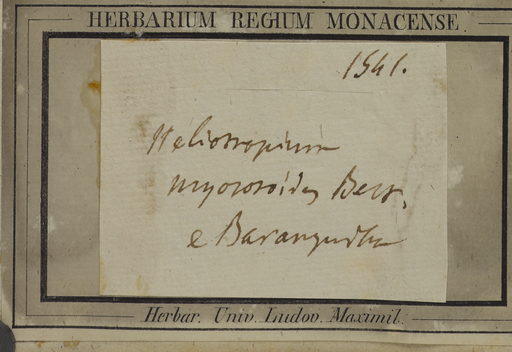 HERBARIUM REGIUM MONACENSE.
1541.
Heliotropium
myosotoides
e
Herbar. Univ. Ludov. Maximil.